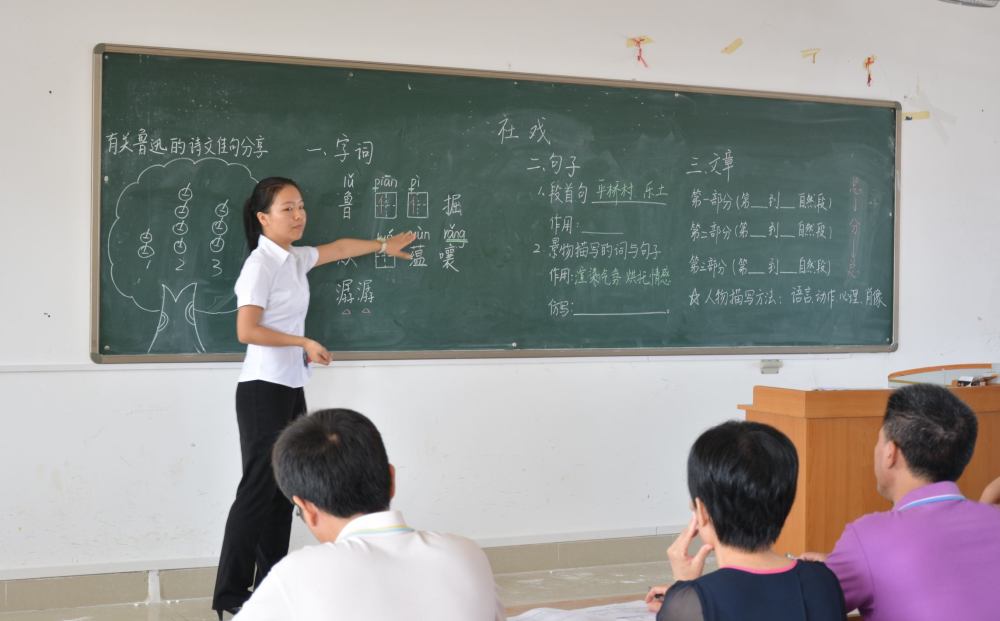 社戏
有关鲁迅的诗文佳句分享
1 2 3
一、字词
lǔ piān pì
鲁 掘
rǎng
蕴 嚷
潺潺
二、句子
1、段首句 平桥村 乐土
作用：
2、景物描写的词与句子
作用：渲染气氛 烘托情感
仿写：
三、文章
第一部分(第__到__自然段)
第二部分(第__到__自然段)
第三部分(第__到__自然段)
☆人物描写方法：语言、动作、心理、肖像
总 分 总